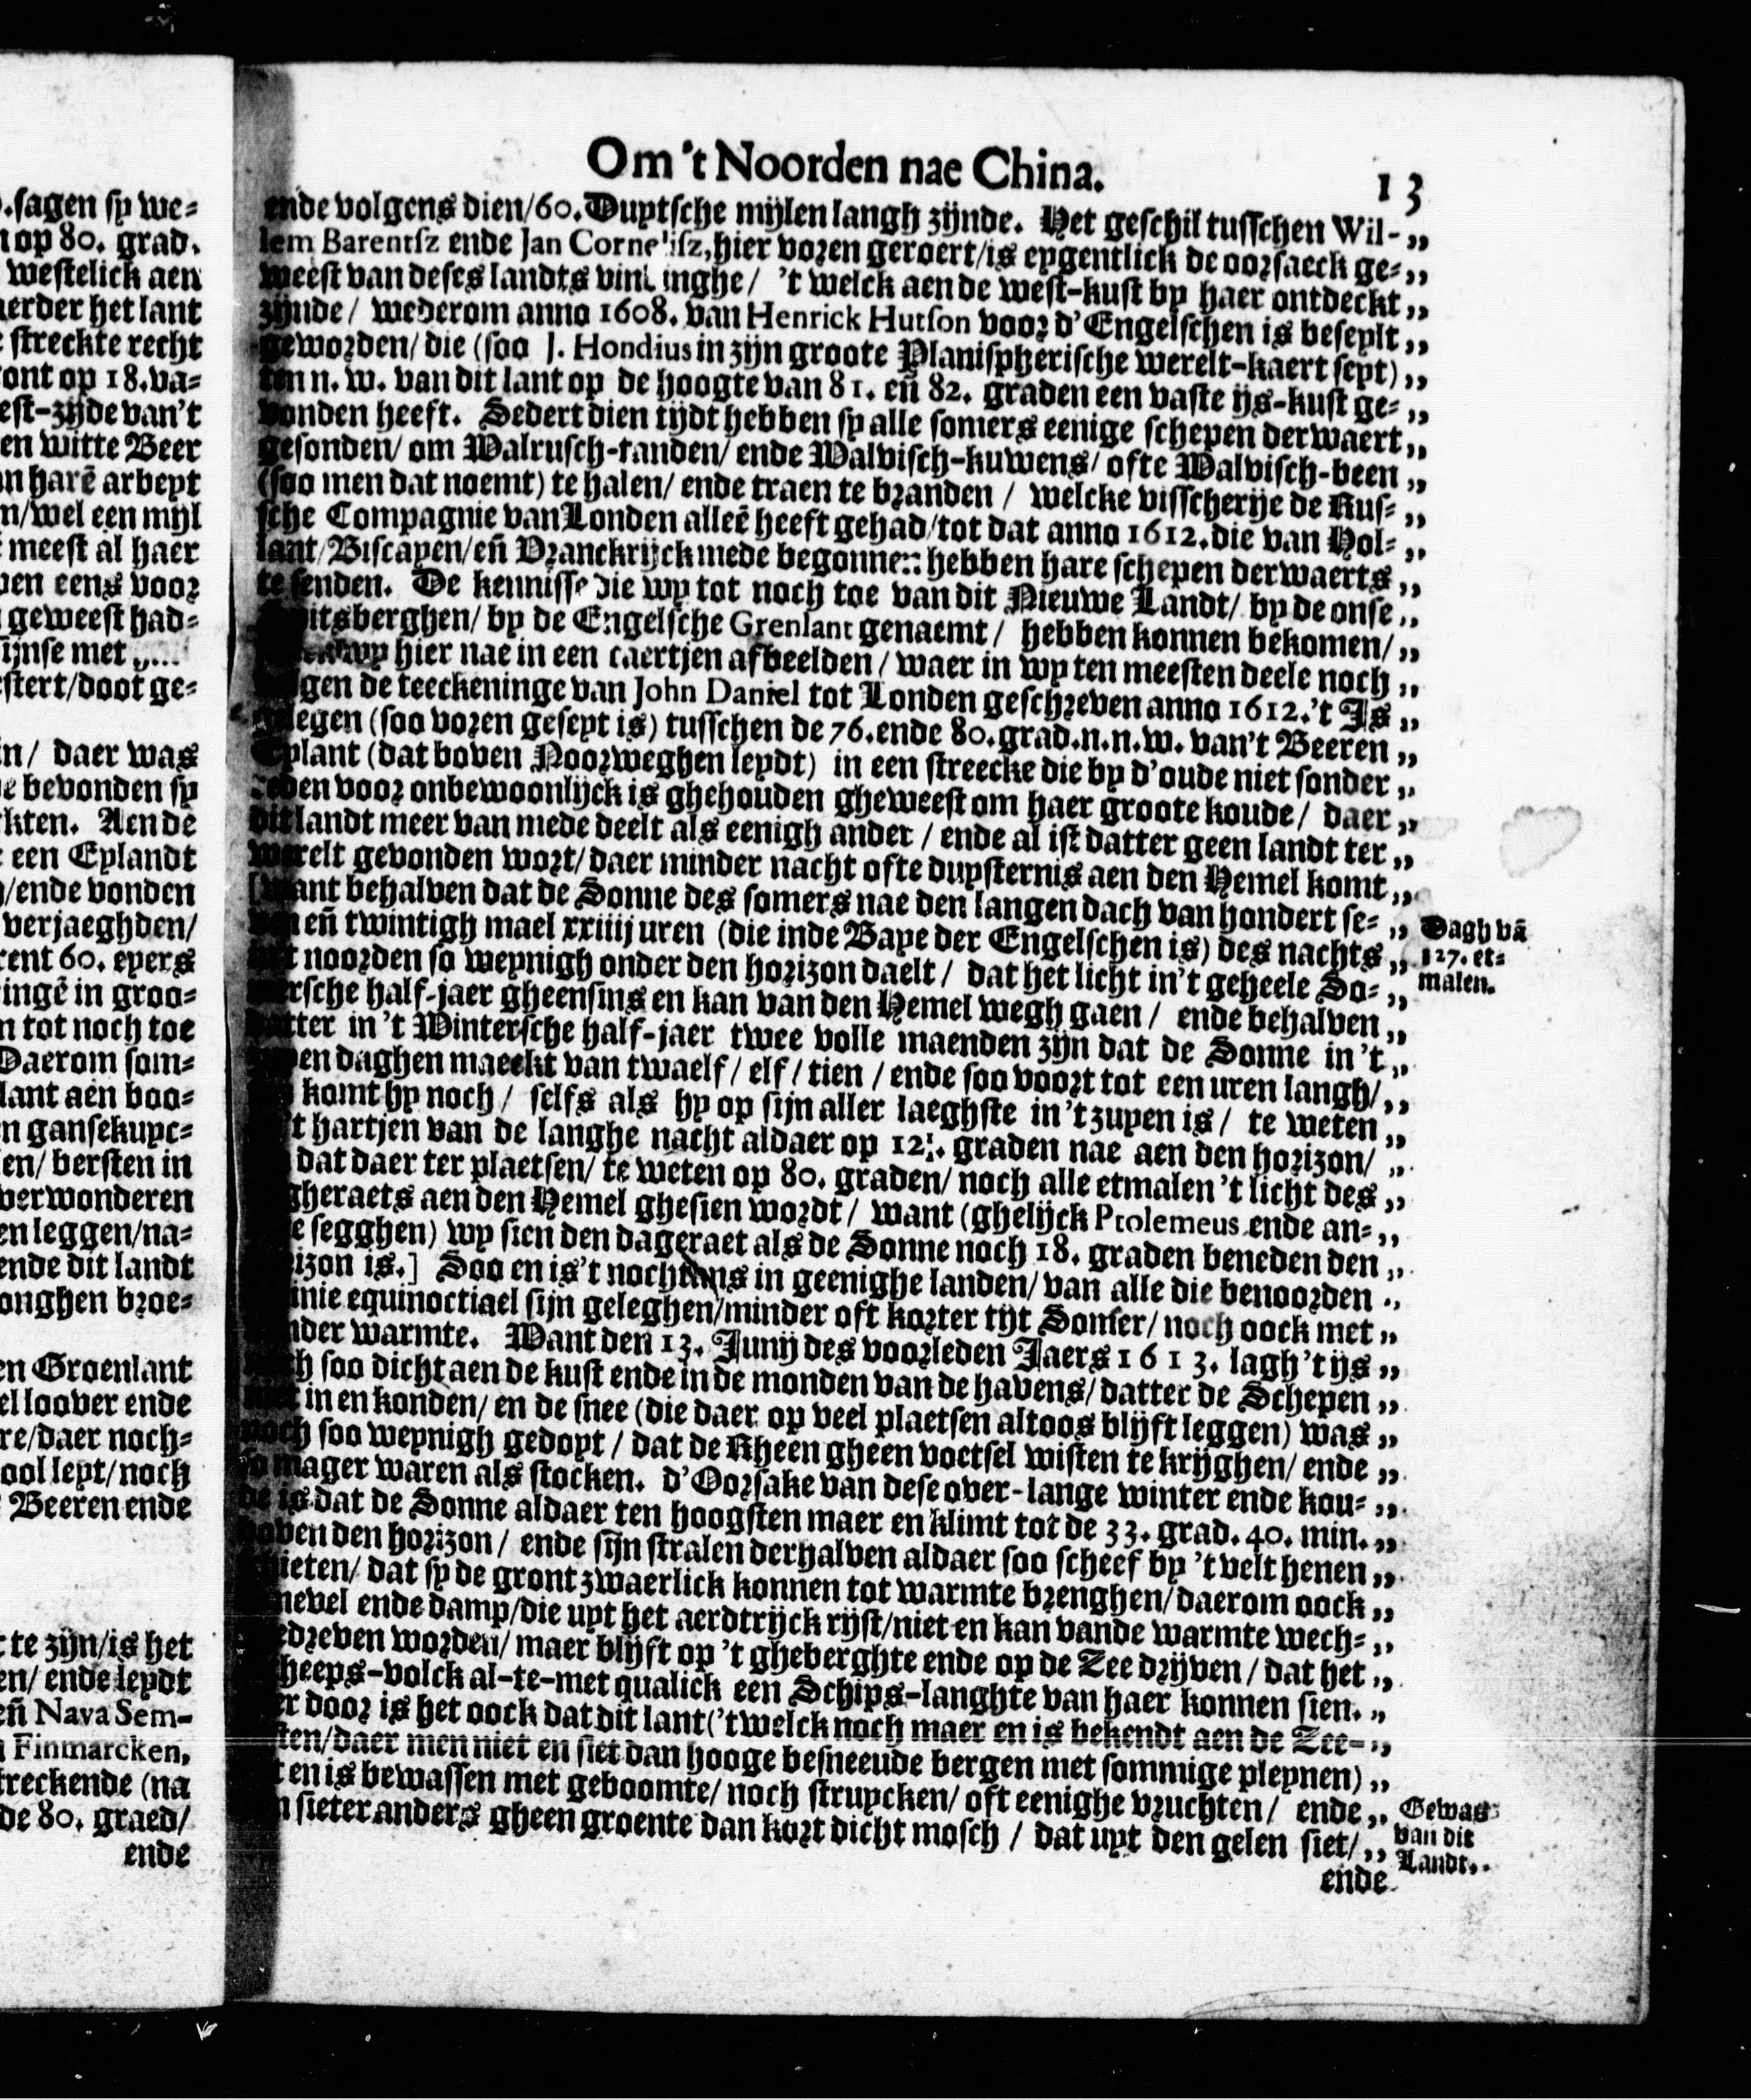 .sagen sy we-
op 80. grad.
westelick aen
erder het lant
streckte recht
ont op 18. va-
est-zijde van't
en witte Beer
n harē arbeyt
n/wel een mijl
meest al haer
ven eens voor
geweest had-
sijnse met
stert/doot ge-
n/ daer was
e bevonden sy
kten. Aen de
een Eylandt
/ende vonden
verjaeghden/
rent 60. eyers
ingē in groo-
n tot noch toe
Daerom som-
lant aen boo-
n gansekuyc-
en/ bersten in
verwonderen
en leggen/na-
ende dit landt
onghen broe-
en Groenlant
el loover ende
re/daer noch-
ool leyt/noch
Beeren ende
te zijn/is het
en/ ende leydt
eñ Nava Sem-
Finmarcken,
treckende (na
de 80. graed/
ende
Om 't Noorden nae China. 13
ende volgens dien/60. Duytsche mijlen langh zijnde. Het geschil tusschen Wil- „
lem Barentsz ende Jan Cornelisz, hier voren geroert/is eygentlick de oorsaeck ge- „
weest van deses landts vindinghe/ 't welck aen de west-kust by haer ontdeckt „
zijnde/ wederom anno 1608. van Henrick Hutson voor d'Engelschen is beseylt „
geworden/ die (soo J. Hondius in zijn groote Planispherische werelt-kaert seyt) „
ten n. w. van dit lant op de hoogte van 81. eñ 82. graden een vaste ijs-kust ge- „
vonden heeft. Sedert dien tijdt hebben sy alle somers eenige schepen derwaert „
gesonden/ om Walrusch-tanden/ ende Walvisch-kuwens/ ofte Walvisch-been „
(soo men dat noemt) te halen/ ende traen te branden / welcke visscherije de Rus- „
sche Compagnie van Londen alleē heeft gehad/tot dat anno 1612. die van Hol- „
lant/Biscayen/eñ Vranckrijck mede begonnen hebben hare schepen derwaerts „
te senden. De kennisse die wy tot noch toe van dit Nieuwe Landt/ by de onse „
itsberghen/ by de Engelsche Grenlant genaemt / hebben konnen bekomen/ „
wy hier nae in een caertjen afbeelden / waer in wy ten meesten deele noch „
gen de teeckeninge van John Daniel tot Londen geschreven anno 1612. 't Is „
gelegen (soo voren geseyt is) tusschen de 76. ende 80. grad. n. n. w. van't Beeren „
Eylant (dat boven Noorweghen leydt) in een streecke die by d'oude niet sonder „
reden voor onbewoonlijck is ghehouden gheweest om haer groote koude/ daer „
dit landt meer van mede deelt als eenigh ander / ende al ist datter geen landt ter „
werelt gevonden wort/ daer minder nacht ofte duysternis aen den Hemel komt „
[want behalven dat de Sonne des somers nae den langen dach van hondert se- „
ven eñ twintigh mael xxiiij uren (die inde Baye der Engelschen is) des nachts „
noorden so weynigh onder den horizon daelt / dat het licht in't geheele So- „
mersche half-jaer gheensins en kan van den Hemel wegh gaen / ende behalven „
datter in 't Wintersche half-jaer twee volle maenden zijn dat de Sonne in 't „
en daghen maeckt van twaelf / elf / tien / ende soo voort tot een uren langh/ „
komt hy noch / selfs als hy op sijn aller laeghste in 't zuyen is / te weten „
't hartjen van de langhe nacht aldaer op 12½. graden nae aen den horizon/ „
dat daer ter plaetsen/ te weten op 80. graden/ noch alle etmalen 't licht des „
gheraets aen den Hemel ghesien wordt / want (ghelijck Ptolemeus ende an- „
e segghen) wy sien den dageraet als de Sonne noch 18. graden beneden den „
izon is.] Soo en is't nochtans in geenighe landen/ van alle die benoorden „
inie equinoctiael sijn geleghen/minder oft korter tijt Somer/ noch oock met „
nder warmte. Want den 13. Junij des voorleden Jaers 1613. lagh 't ijs „
h soo dicht aen de kust ende in de monden van de havens/ datter de Schepen „
in en konden/ en de snee (die daer op veel plaetsen altoos blijft leggen) was „
noch soo weynigh gedoyt / dat de Rheen gheen voetsel wisten te krijghen/ ende „
so mager waren als stocken. d'Oorsake van dese over-lange winter ende kou- „
de is dat de Sonne aldaer ten hoogsten maer en klimt tot de 33. grad. 40. min. „
boven den horizon / ende sijn stralen derhalven aldaer soo scheef by 't velt henen „
schieten/ dat sy de gront zwaerlick konnen tot warmte brenghen/ daerom oock „
nevel ende damp/die uyt het aerdtrijck rijst/niet en kan vande warmte wech- „
edreven worden/ maer blijft op 't gheberghte ende op de Zee drijven / dat het „
heeps-volck al-te-met qualick een Schips-langhte van haer konnen sien. „
er door is het oock dat dit lant ('t welck noch maer en is bekendt aen de Zee- „
sten/daer men niet en siet dan hooge besneeude bergen met sommige pleynen) „
t en is bewassen met geboomte/ noch struycken/ oft eenighe vruchten / ende „
n sieter anders gheen groente dan kort dicht mosch / dat uyt den gelen siet/ „
ende
Dagh vā
127. et-
malen.
Gewas
van dit
Landt.